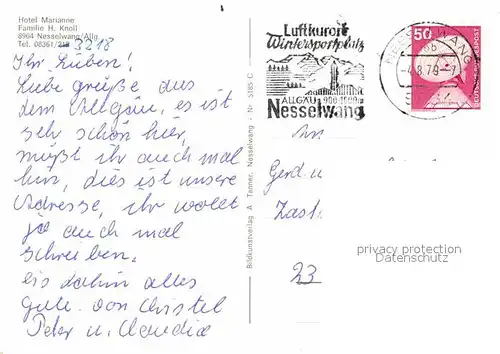 Hotel Marianne
Familie H. Knoll
8964 Nesselwang/Allg.
Tel. 08361/218 3218
Ihr Lieben!
Liebe Grüße aus
dem Allgäu, es ist
sehr schön hier,
müßt ihr auch mal
hin, dies ist unsere
Adresse, ihr wollt
ja auch mal
schreiben.
Bis dahin alles
Gute. von Christel
Peter u. Claudia
Bildkunstverlag A. Tanner, Nesselwang - Nr. 5185 C
Luftkurort
Wintersportplatz
ALLGÄU 900-1600m
Nesselwang
NESSELWANG
50
DEUTSCHE BUNDESPOST
An
Gerd u
Zast
23
privacy protection
Datenschutz